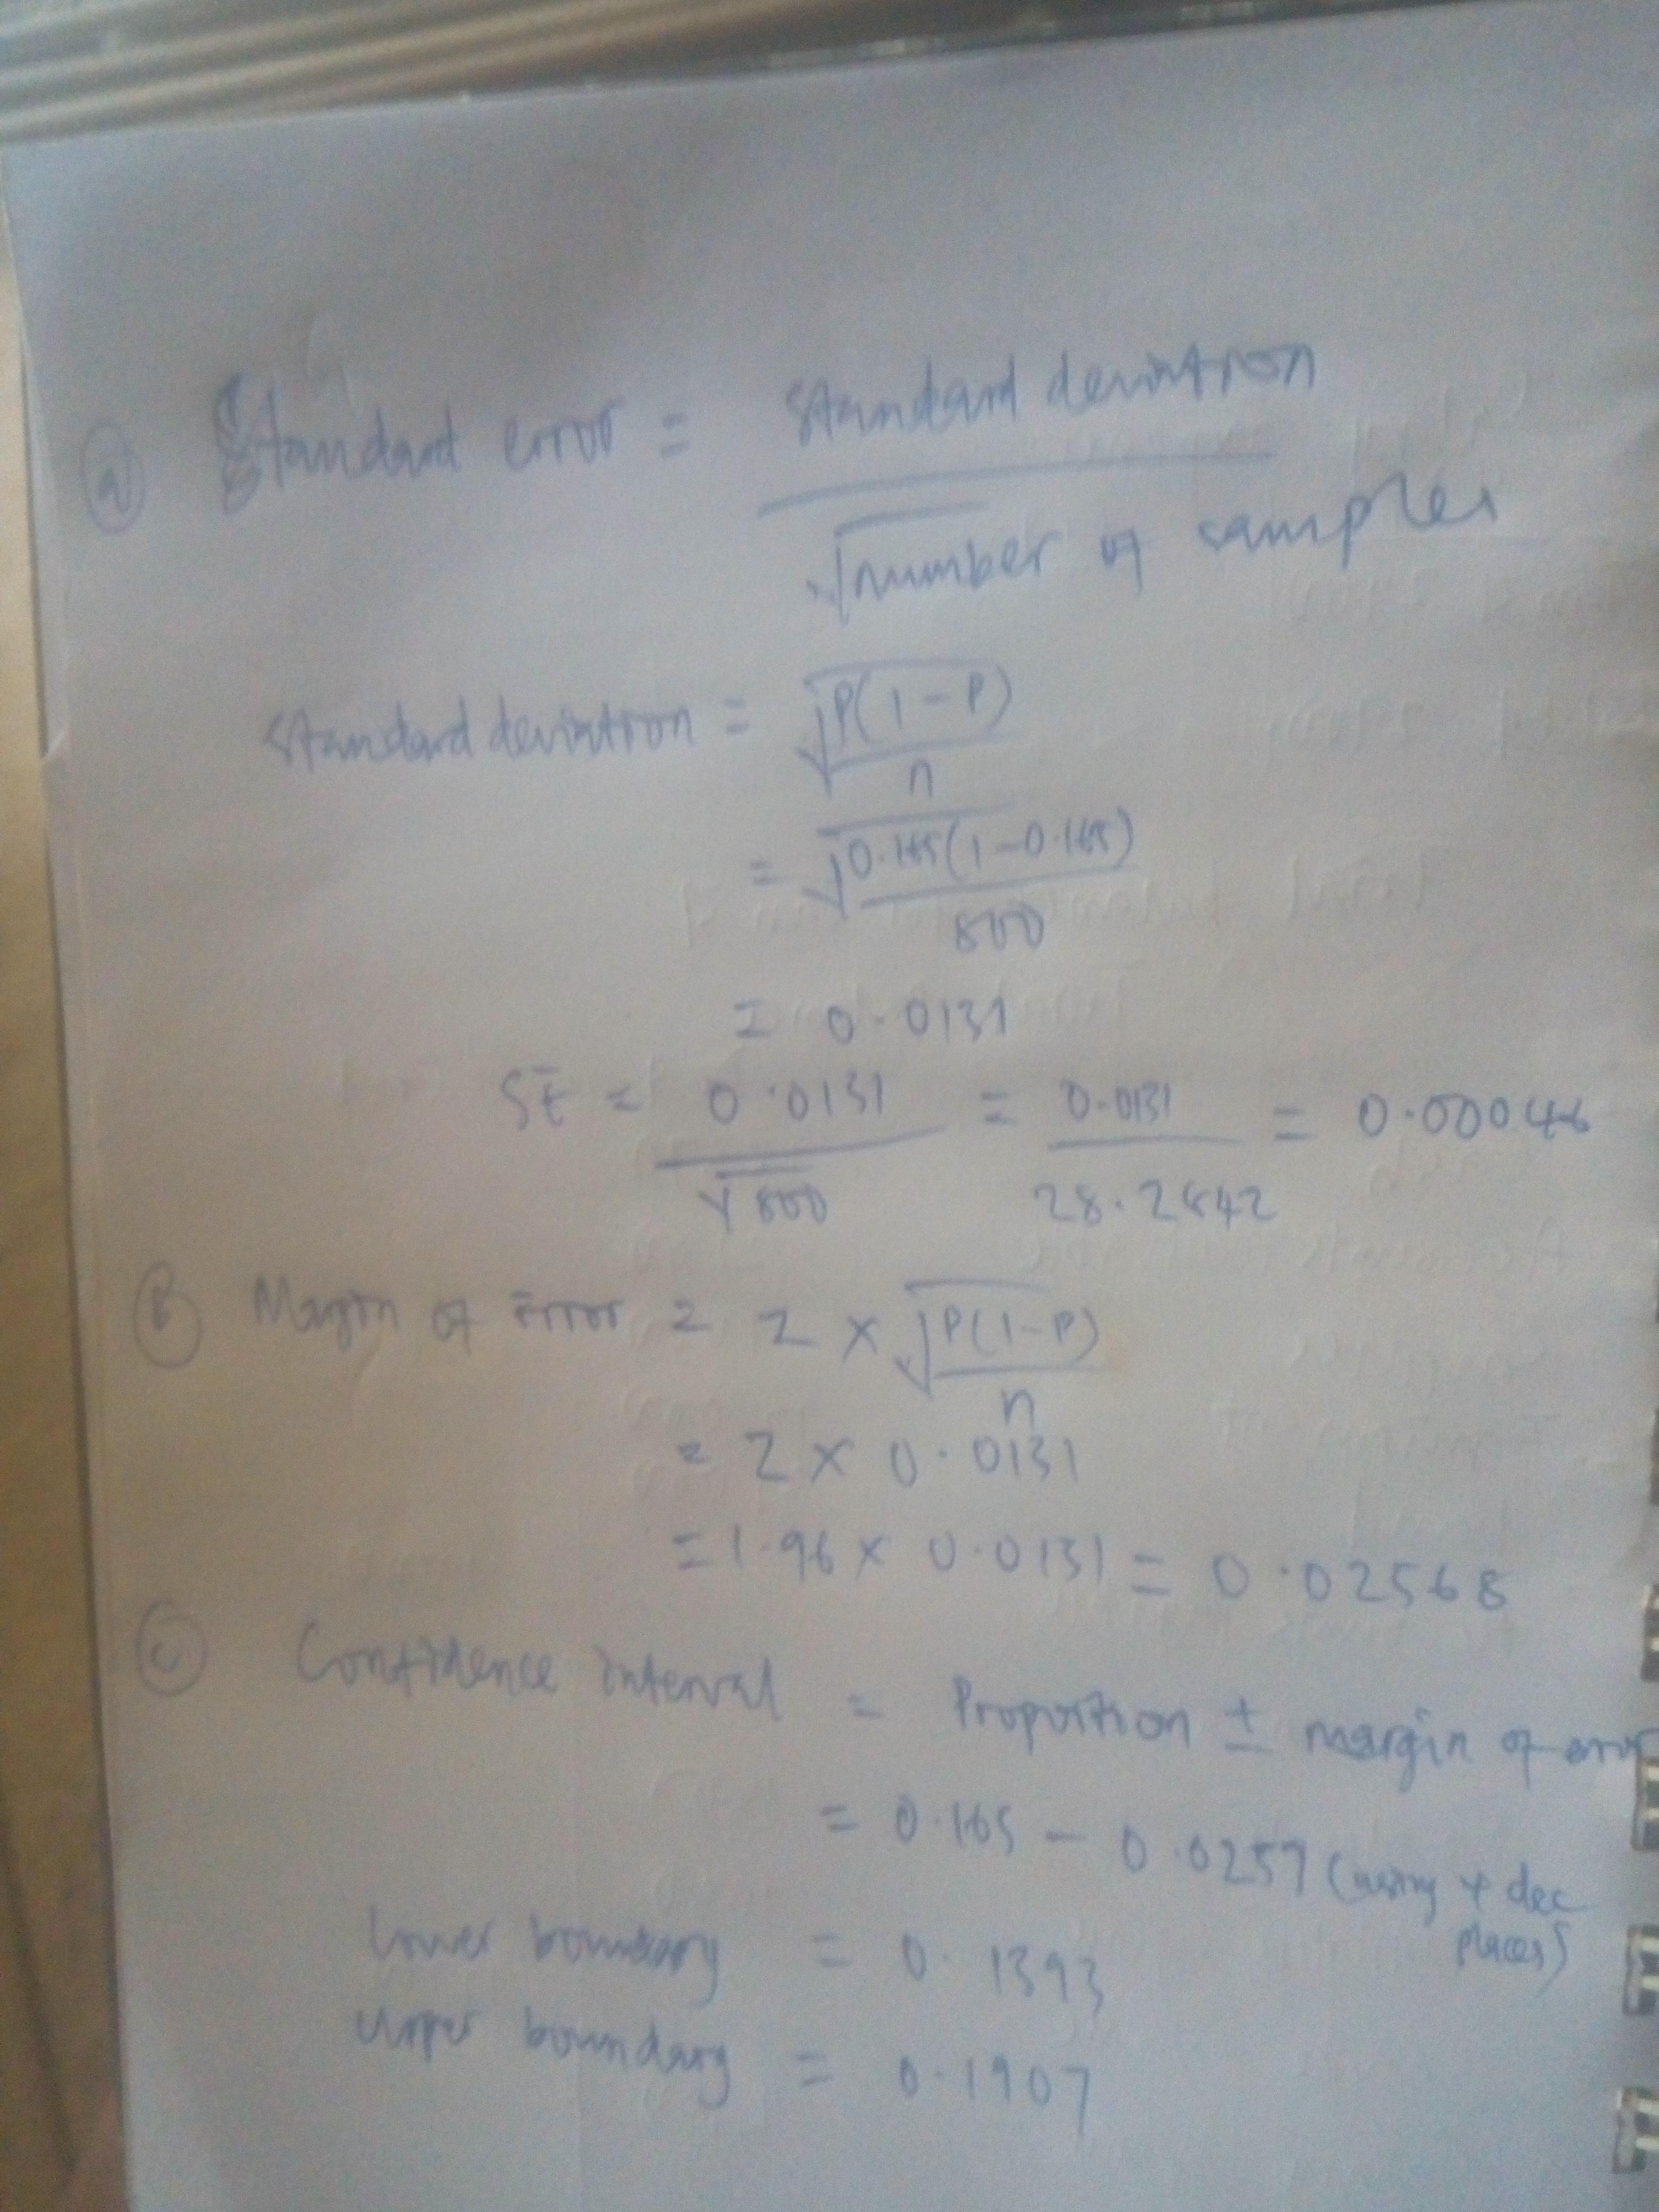 (a) Standard error = Standard deviation
√number of samples
Standard deviation = √P(1-P)
n
= √0.165(1-0.165)
800
= 0.0131
SE = 0.0131 = 0.0131 = 0.00046
√800 28.2842
(B) Margin of Error = Z × √P(1-P)
n
= Z × 0.0131
= 1.96 × 0.0131 = 0.02568
(C) Confidence interval = Proportion ± margin of error
= 0.165 - 0.0257 (using 4 dec places)
lower boundary = 0.1393
Upper boundary = 0.1907